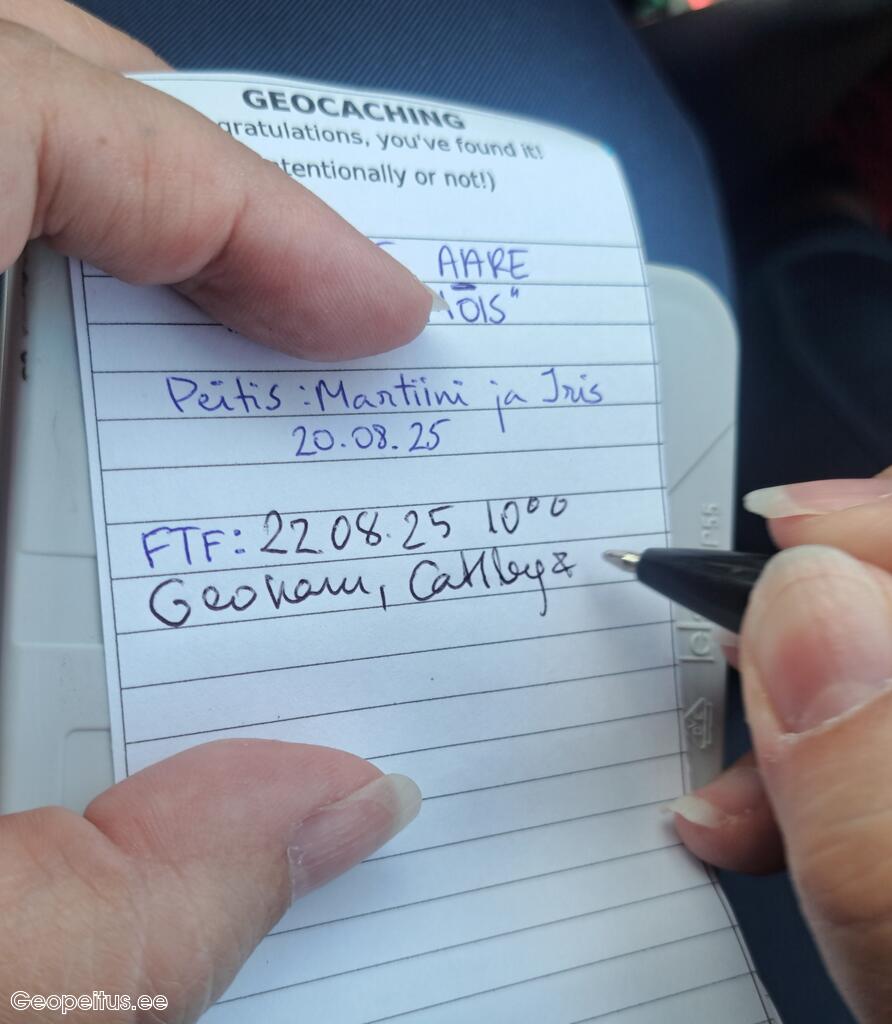 GEOCACHING
gratulations, you've found it!
tentionally or not!)
AARE
ÕIS"
Peitis: Martiini ja Iris
20.08.25
FTF: 22.08.25 10⁰⁰
&
Geopeitus.ee